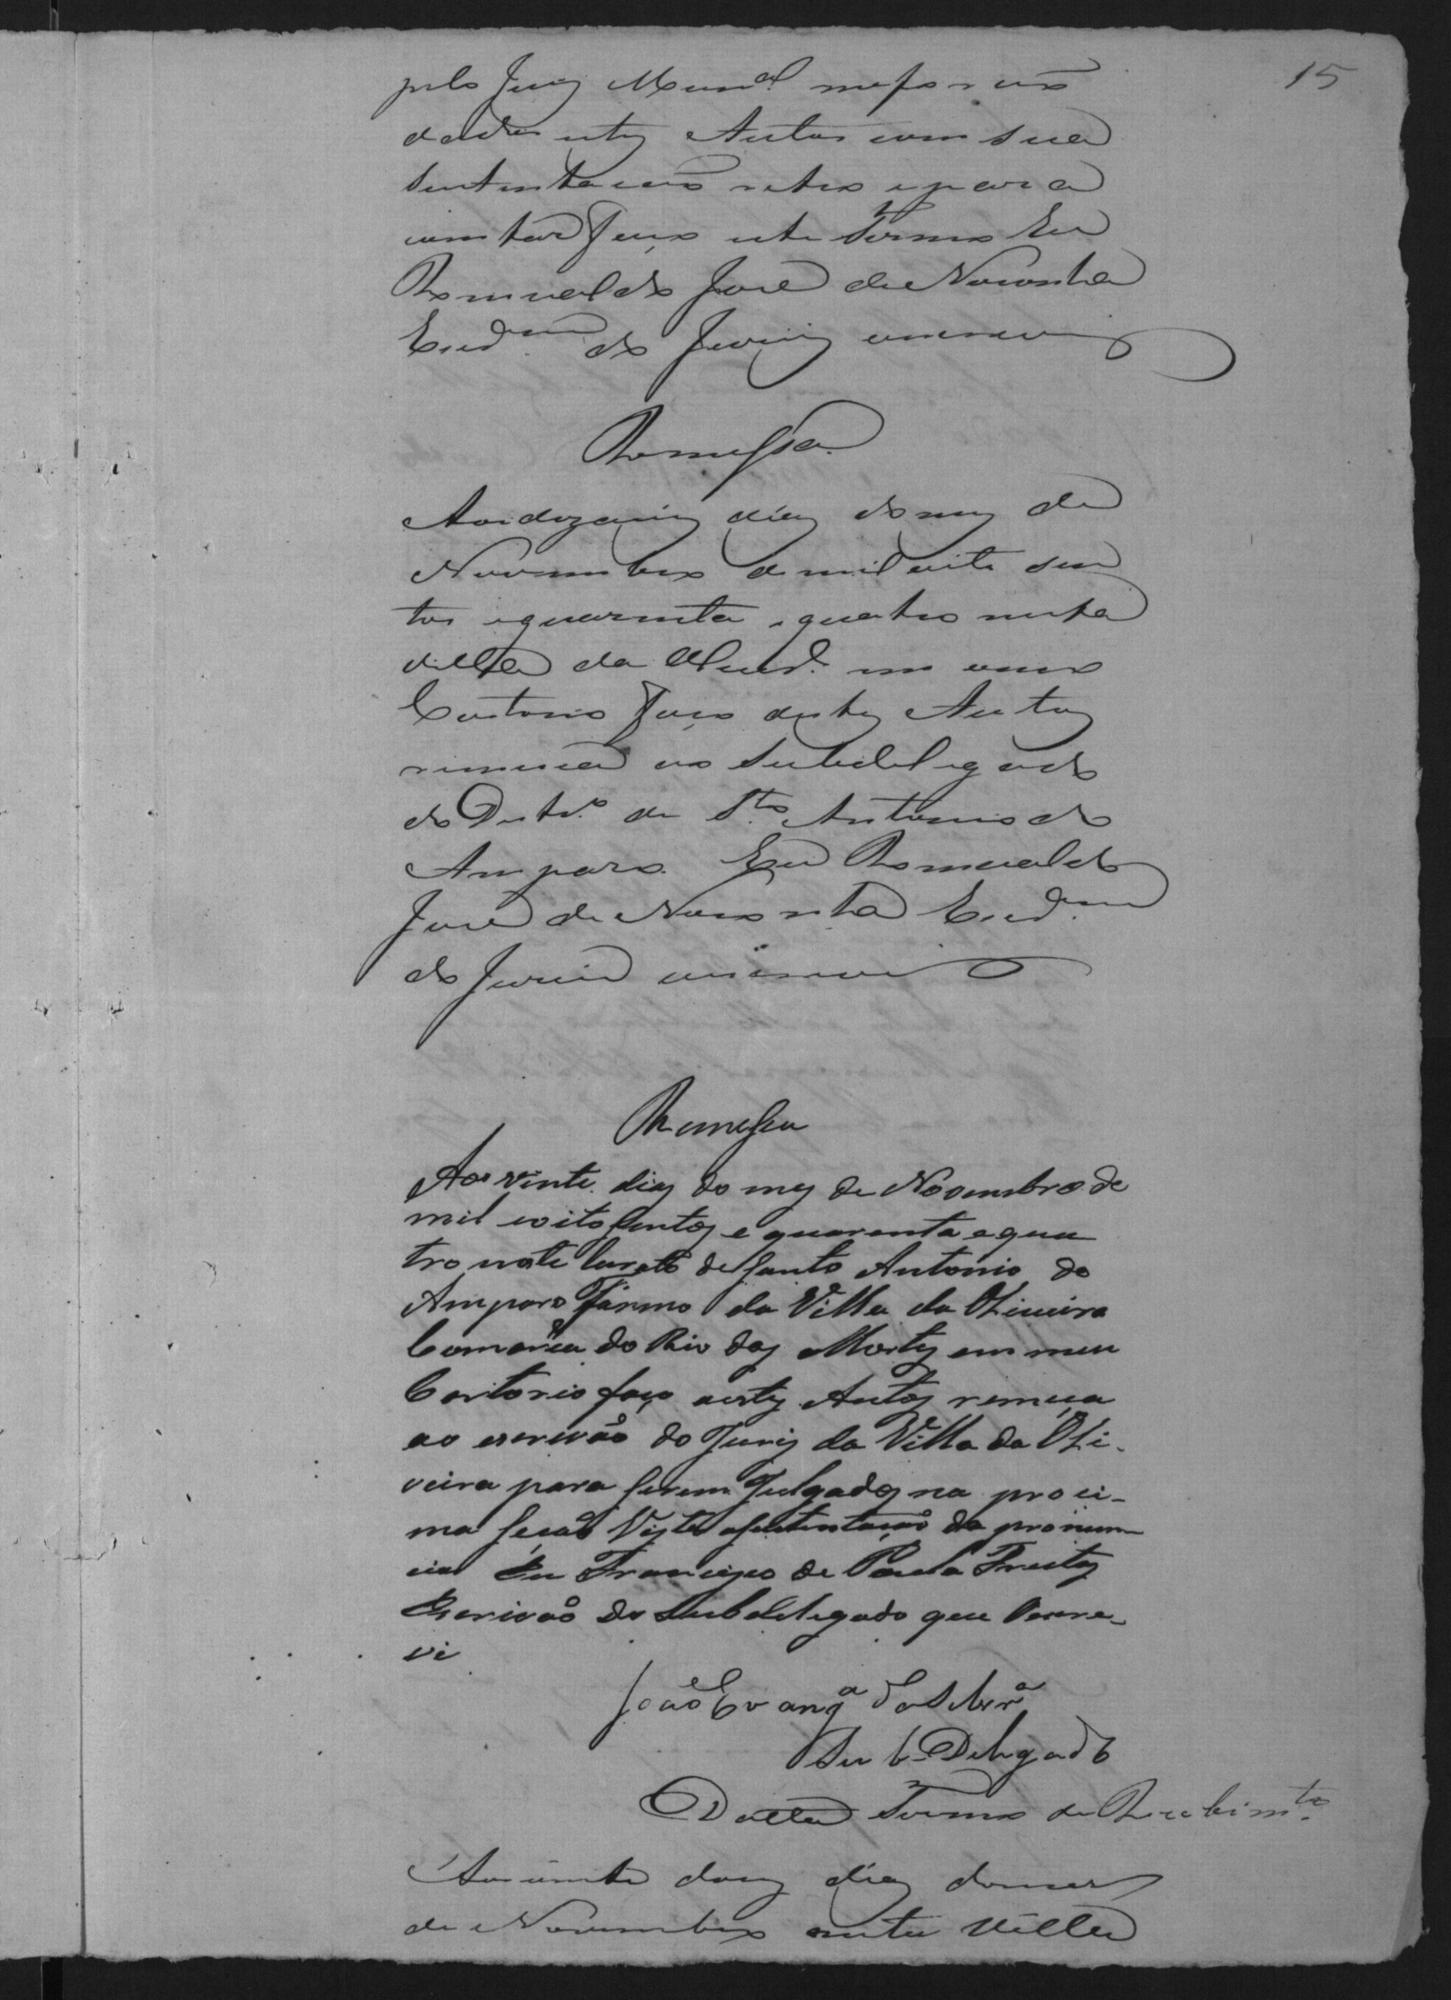 15
pelo Juiz Munal me forão
dados estes Autos com sua
sustentação retro e para
constar faço este Termo Eu
Romualdo José de Noronha
Escram do Juriz escrevi
Remessa
Aos dezaseis dias do mez de
Novembro de mil oito sen
tos e quarenta e quatro nesta
villa da Olivra em meu
Cartorio faço destes Autos
remeça ao Subdelegado
do Destro de Sto Antonio do
Amparo. Eu Romualdo
José de Noronha Escram
do Juriz escrevi
Remessa
Aos vinte dias do mez de Novembro de
mil oito sentos e quarenta e qua
tro neste Curato de Santo Antonio do
Amparo Termo da Villa da Oliveira
Comarca do Rio das Mortes em meu
Cartorio faço destes Autos remeça
ao escrivão do Juriz da Villa da Oli-
veira para serem Julgados na proci-
ma seção Visto a sustentação da pronun-
cia Eu Francisco de Paula Freitas
Escrivão do Subdelegado que Escre-
vi
João Evanga da Silvra
Sub Delegado
Datta Termo de Recebimto
Aos vinte dous dias do mes
de Novembro nesta Villa